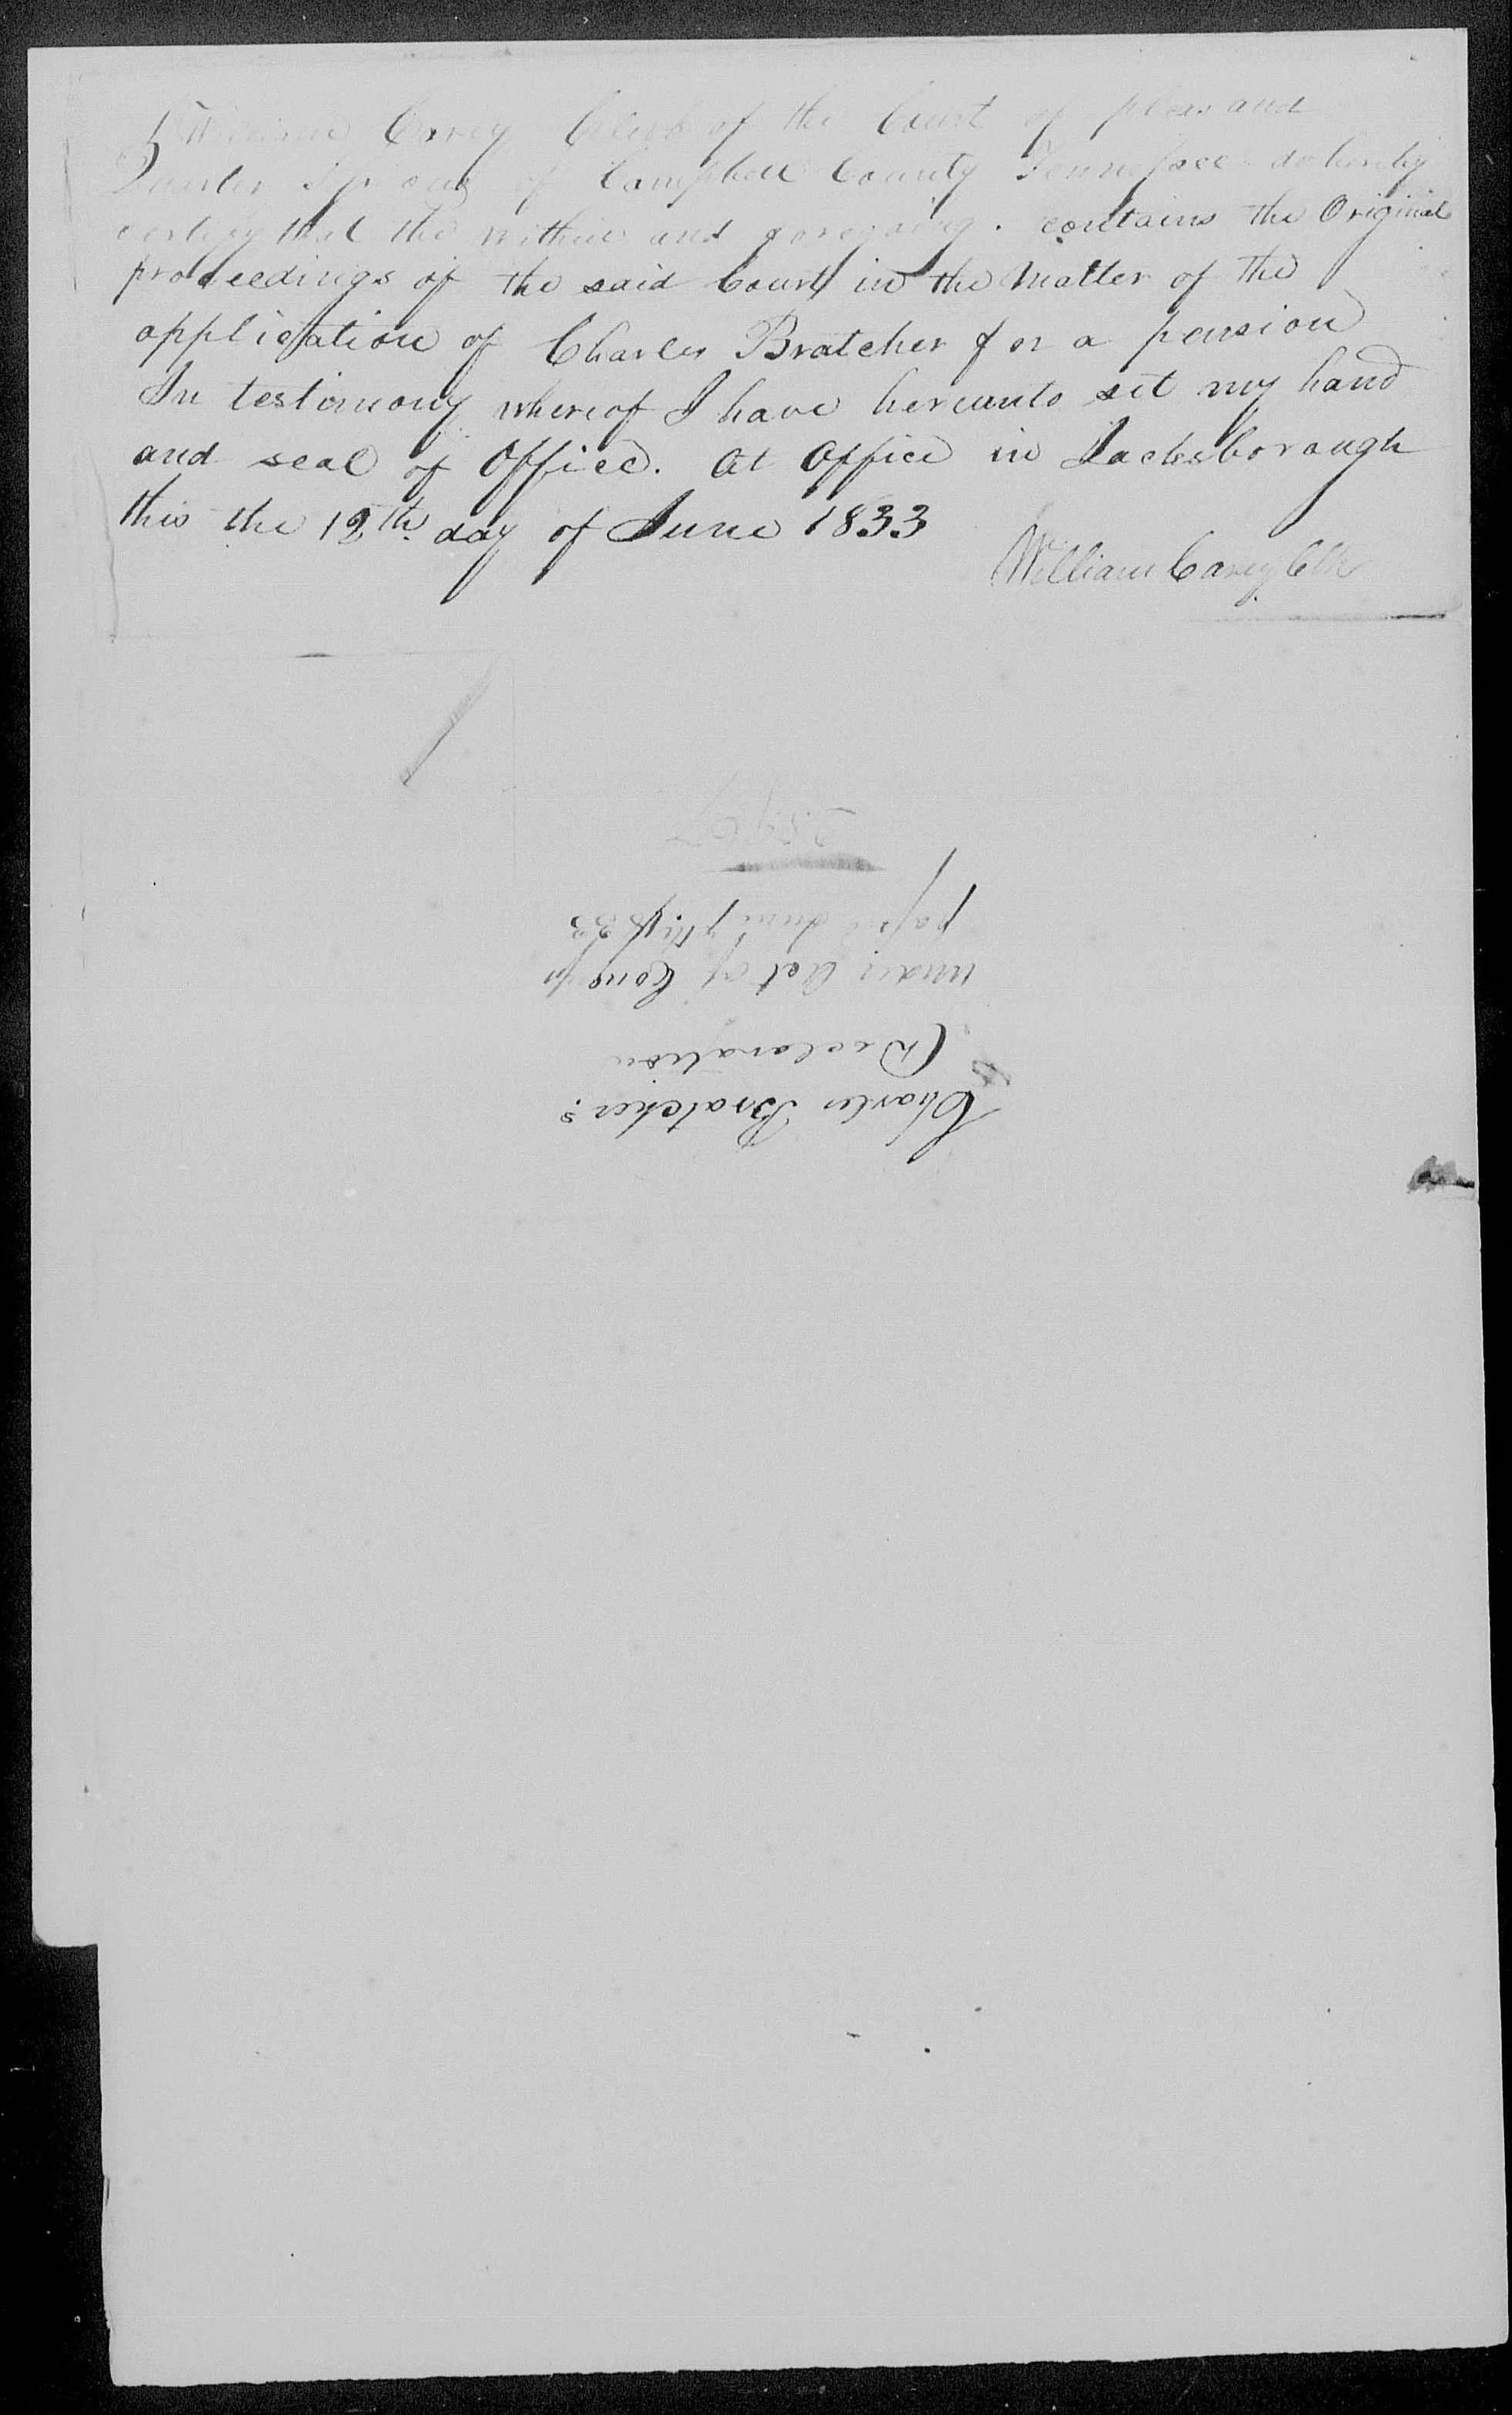 I William Carey Clerk of the Court of pleas and
Quarter Sessions of Campbell County Tennessee do hereby
certify that the within and foregoing. contains the Original
proceedings of the said Court in the Matter of the
application of Charles Bratcher for a pension
In testimony whereof I have hereunto set my hand
and seal of Office. At Office in Jacksborough
this the 12th day of June 1833
William Carey Clk
Charles Bratcher's
Declaration
under Act of
June 7th